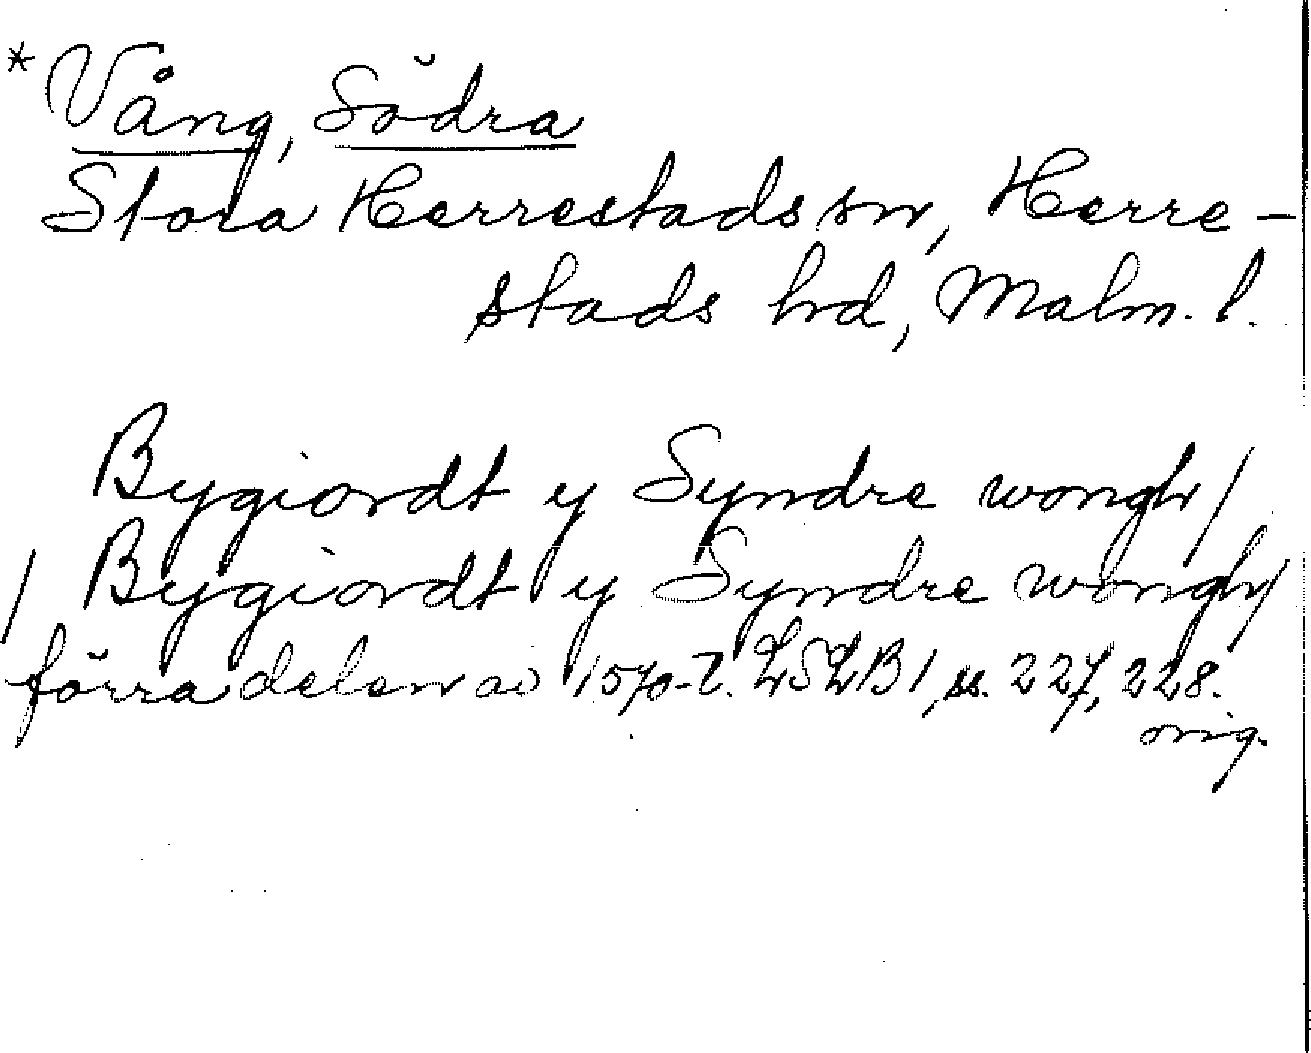 *Vång, Södra
Stora Herrestads sn, Herre-
stads hd, Malm. l.
Bygiordt y Syndre wongh/
/Bygiordt y Syndre wongh/
förra delen av 1570-t. LSLB1, ss. 227, 228.
orig.